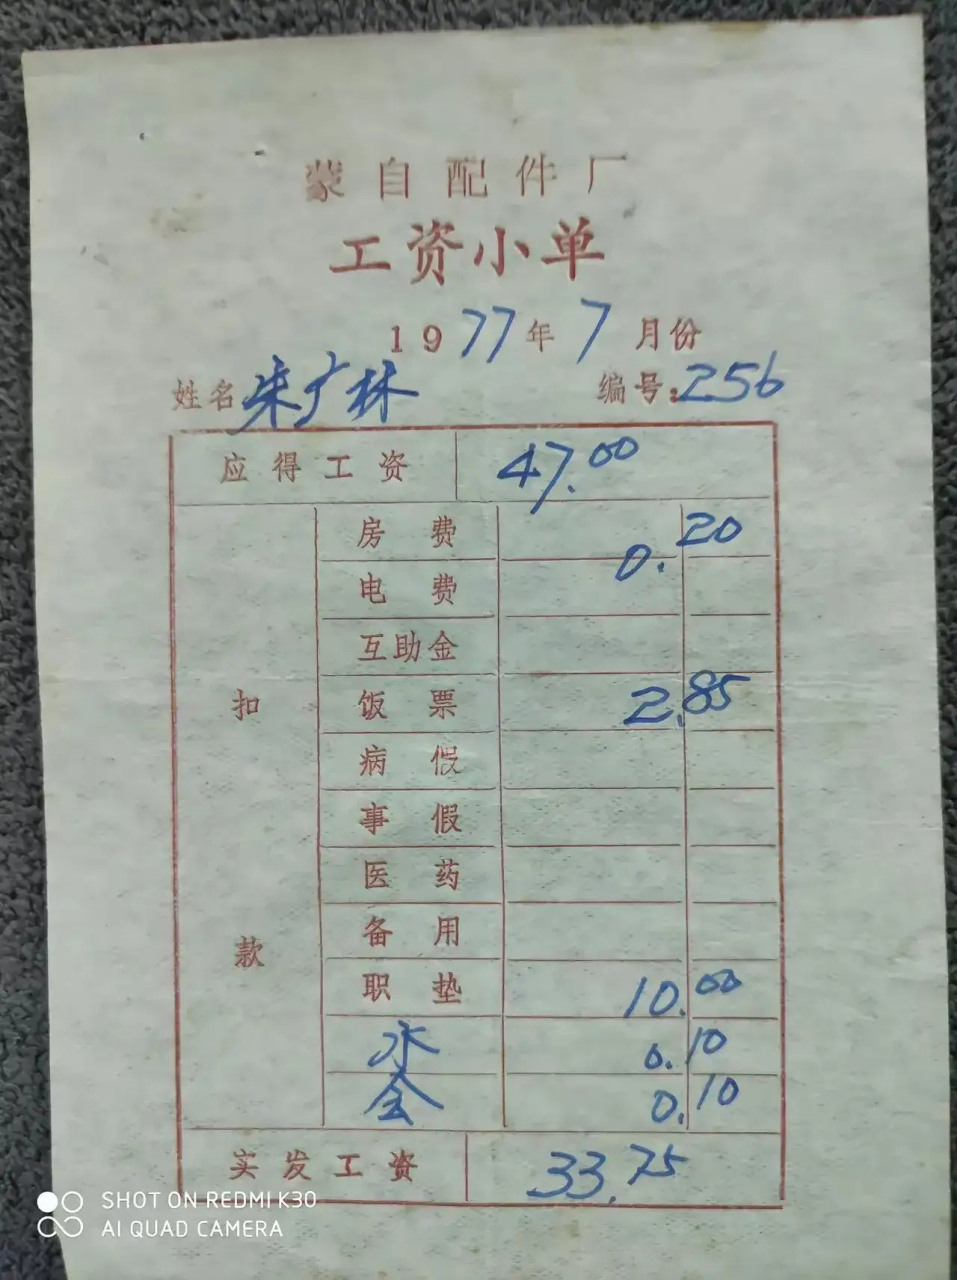 蒙自配件厂
工资小单
1977年7月份
姓名 朱广林 编号:256
应得工资 47.00
扣款
房费 0.20
电费
互助金
饭票 2.85
病假
事假
医药
备用
职垫 10.00
水 0.10
会 0.10
实发工资 33.75
SHOT ON REDMI K30
AI QUAD CAMERA